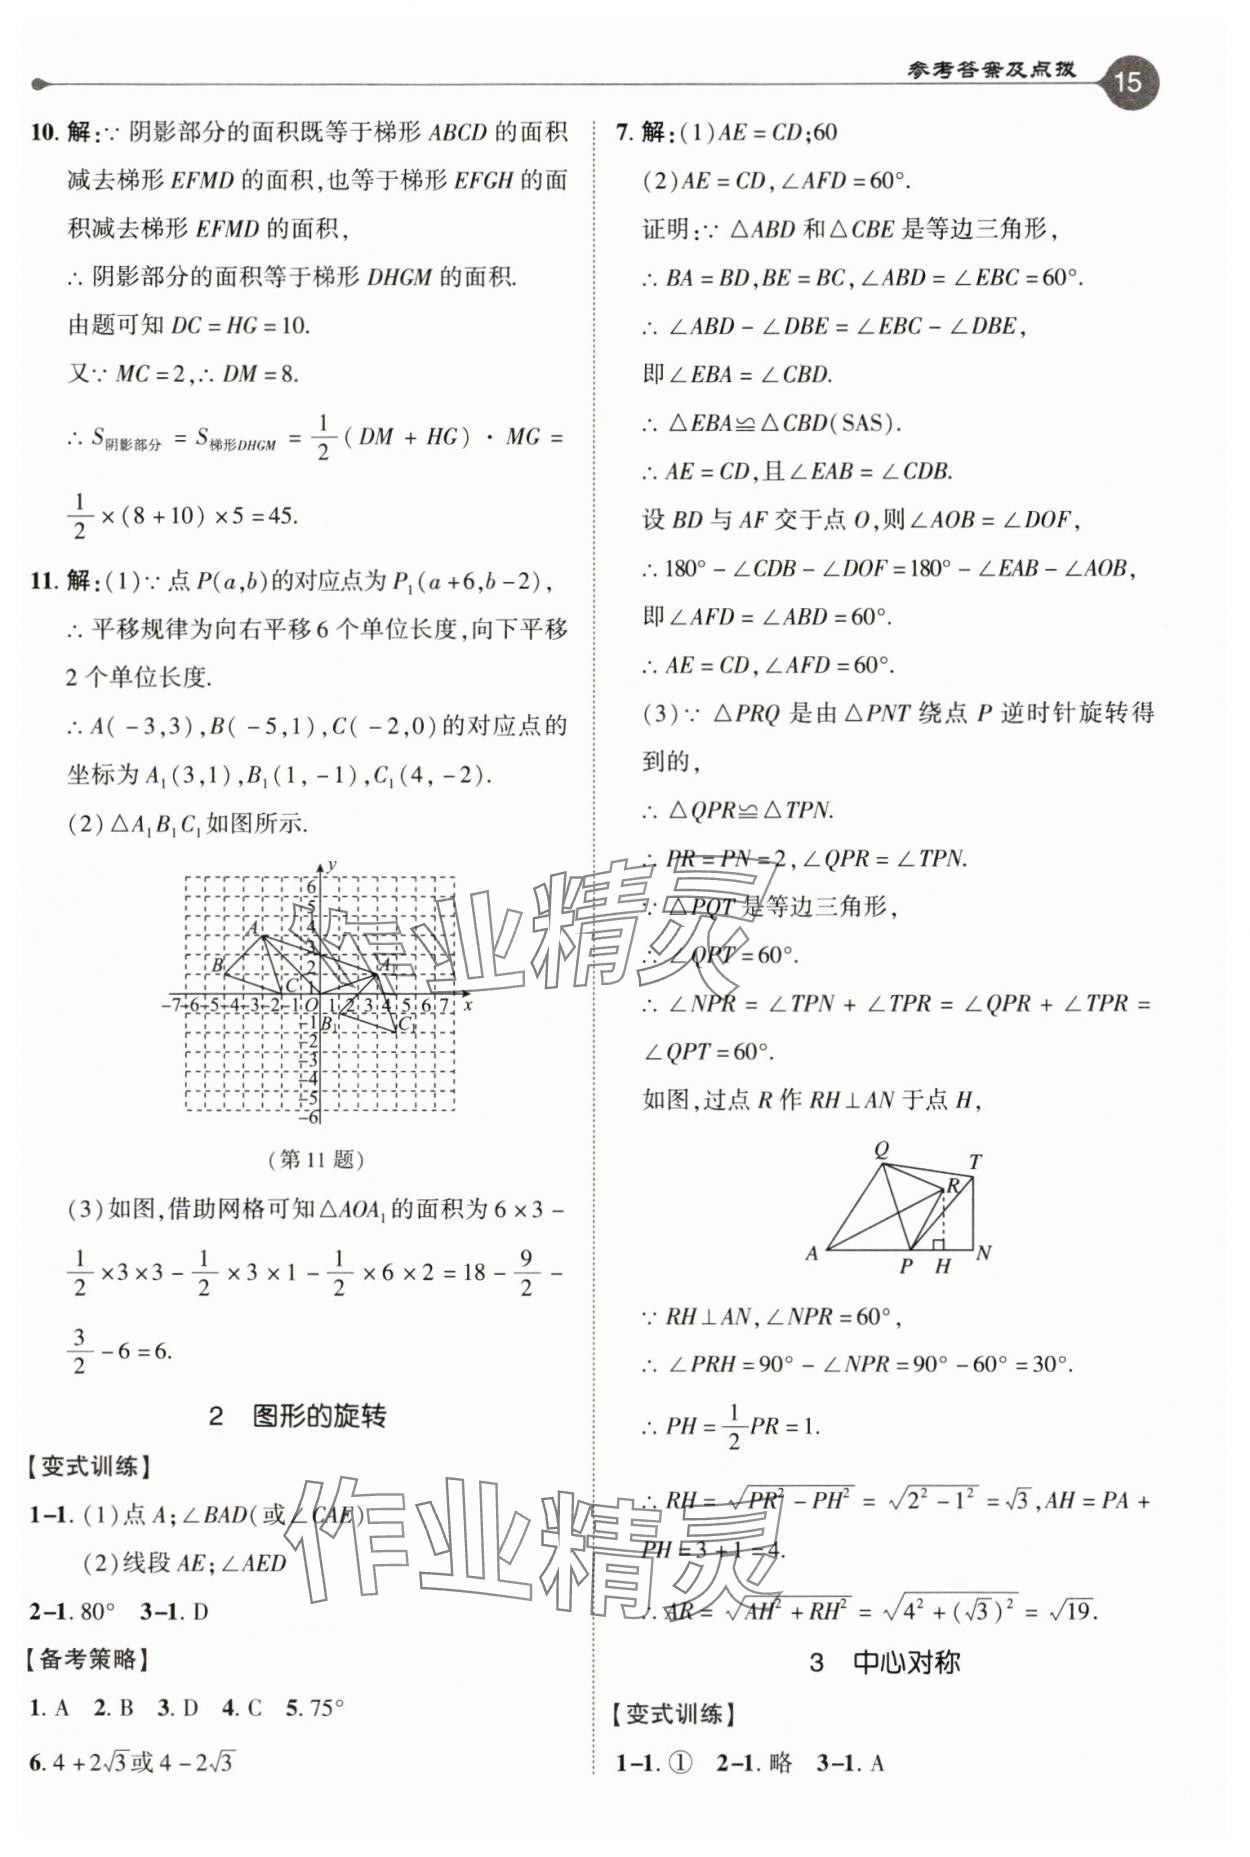 参考答案及点拨 15
10. 解:∵ 阴影部分的面积既等于梯形 ABCD 的面积
减去梯形 EFMD 的面积,也等于梯形 EFGH 的面
积减去梯形 EFMD 的面积,
∴ 阴影部分的面积等于梯形 DHGM 的面积.
由题可知 DC = HG = 10.
又∵ MC = 2,∴ DM = 8.
∴ S阴影部分 = S梯形DHGM = 1/2 (DM + HG) · MG =
1/2 × (8 + 10) × 5 = 45.
11. 解:(1)∵ 点 P(a,b)的对应点为 P₁(a+6,b-2),
∴ 平移规律为向右平移 6 个单位长度,向下平移
2 个单位长度.
∴ A(-3,3),B(-5,1),C(-2,0)的对应点的
坐标为 A₁(3,1),B₁(1,-1),C₁(4,-2).
(2)△A₁B₁C₁如图所示.
y
6
5
4
3
2
1
A
B
C
A₁
-7-6-5-4-3-2-1 O 1 2 3 4 5 6 7 x
B₁
C₁
-1
-2
-3
-4
-5
-6
(第 11 题)
(3)如图,借助网格可知△AOA₁的面积为 6×3-
1/2 ×3×3- 1/2 ×3×1- 1/2 ×6×2=18- 9/2 -
3/2 -6=6.
2 图形的旋转
【变式训练】
1-1. (1)点 A;∠BAD(或∠CAE)
(2)线段 AE;∠AED
2-1. 80° 3-1. D
【备考策略】
1. A 2. B 3. D 4. C 5. 75°
6. 4+2√3或 4-2√3
7. 解:(1)AE = CD;60
(2)AE = CD,∠AFD = 60°.
证明:∵ △ABD 和△CBE 是等边三角形,
∴ BA = BD,BE = BC,∠ABD = ∠EBC = 60°.
∴ ∠ABD - ∠DBE = ∠EBC - ∠DBE,
即∠EBA = ∠CBD.
∴ △EBA≌△CBD(SAS).
∴ AE = CD,且∠EAB = ∠CDB.
设 BD 与 AF 交于点 O,则∠AOB = ∠DOF,
∴ 180° - ∠CDB - ∠DOF = 180° - ∠EAB - ∠AOB,
即∠AFD = ∠ABD = 60°.
∴ AE = CD,∠AFD = 60°.
(3)∵ △PRQ 是由△PNT 绕点 P 逆时针旋转得
到的,
∴ △QPR≌△TPN.
∴ PR = PN = 2,∠QPR = ∠TPN.
∵ △PQT 是等边三角形,
∴ ∠QPT = 60°.
∴ ∠NPR = ∠TPN + ∠TPR = ∠QPR + ∠TPR =
∠QPT = 60°.
如图,过点 R 作 RH⊥AN 于点 H,
Q
T
R
A
P H N
∵ RH⊥AN,∠NPR = 60°,
∴ ∠PRH = 90° - ∠NPR = 90° - 60° = 30°.
∴ PH = 1/2 PR = 1.
∴ RH = √(PR² - PH²) = √(2² - 1²) = √3,AH = PA +
PH = 3 + 1 = 4.
∴ AR = √(AH² + RH²) = √(4² + (√3)²) = √19.
3 中心对称
【变式训练】
1-1. ① 2-1. 略 3-1. A
作业精灵
作业精灵